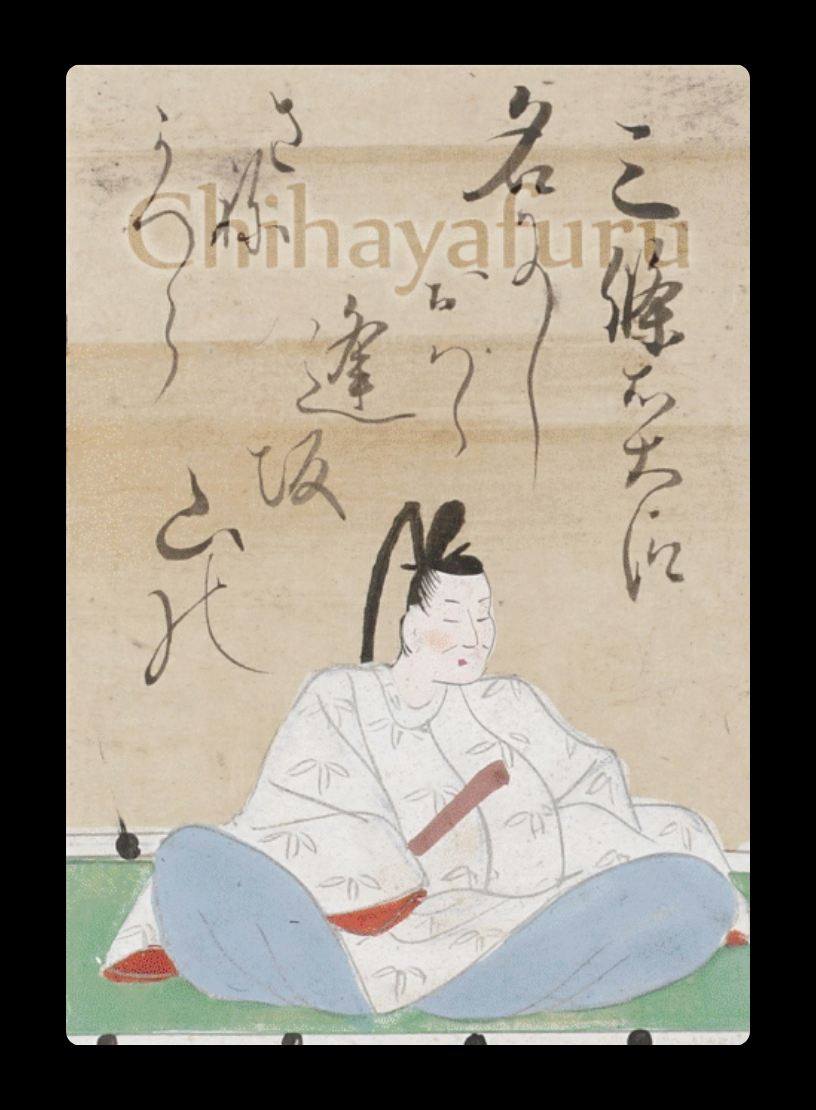 三條右大臣
名にし
おはゝ
逢坂
山の
さ祢
かつら
Chihayafuru